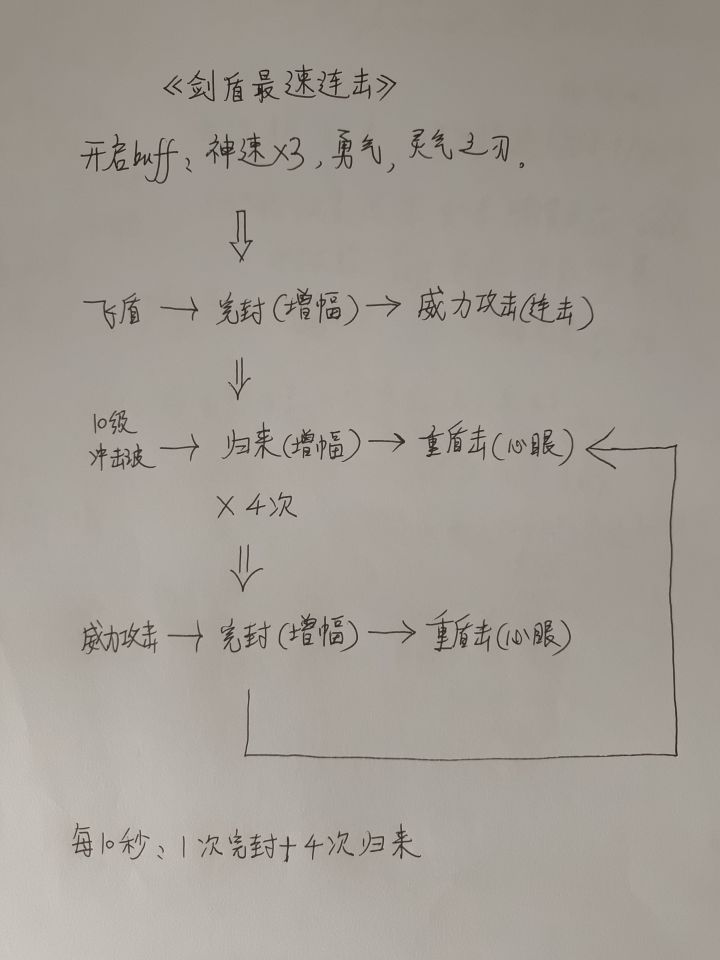 《剑盾最速连击》
开启buff：神速×3，勇气，灵气之刃。
飞盾→完封(增幅)→威力攻击(连击)
10级冲击波→归来(增幅)→重盾击(心眼)
×4次
威力攻击→完封(增幅)→重盾击(心眼)
每10秒：1次完封+4次归来